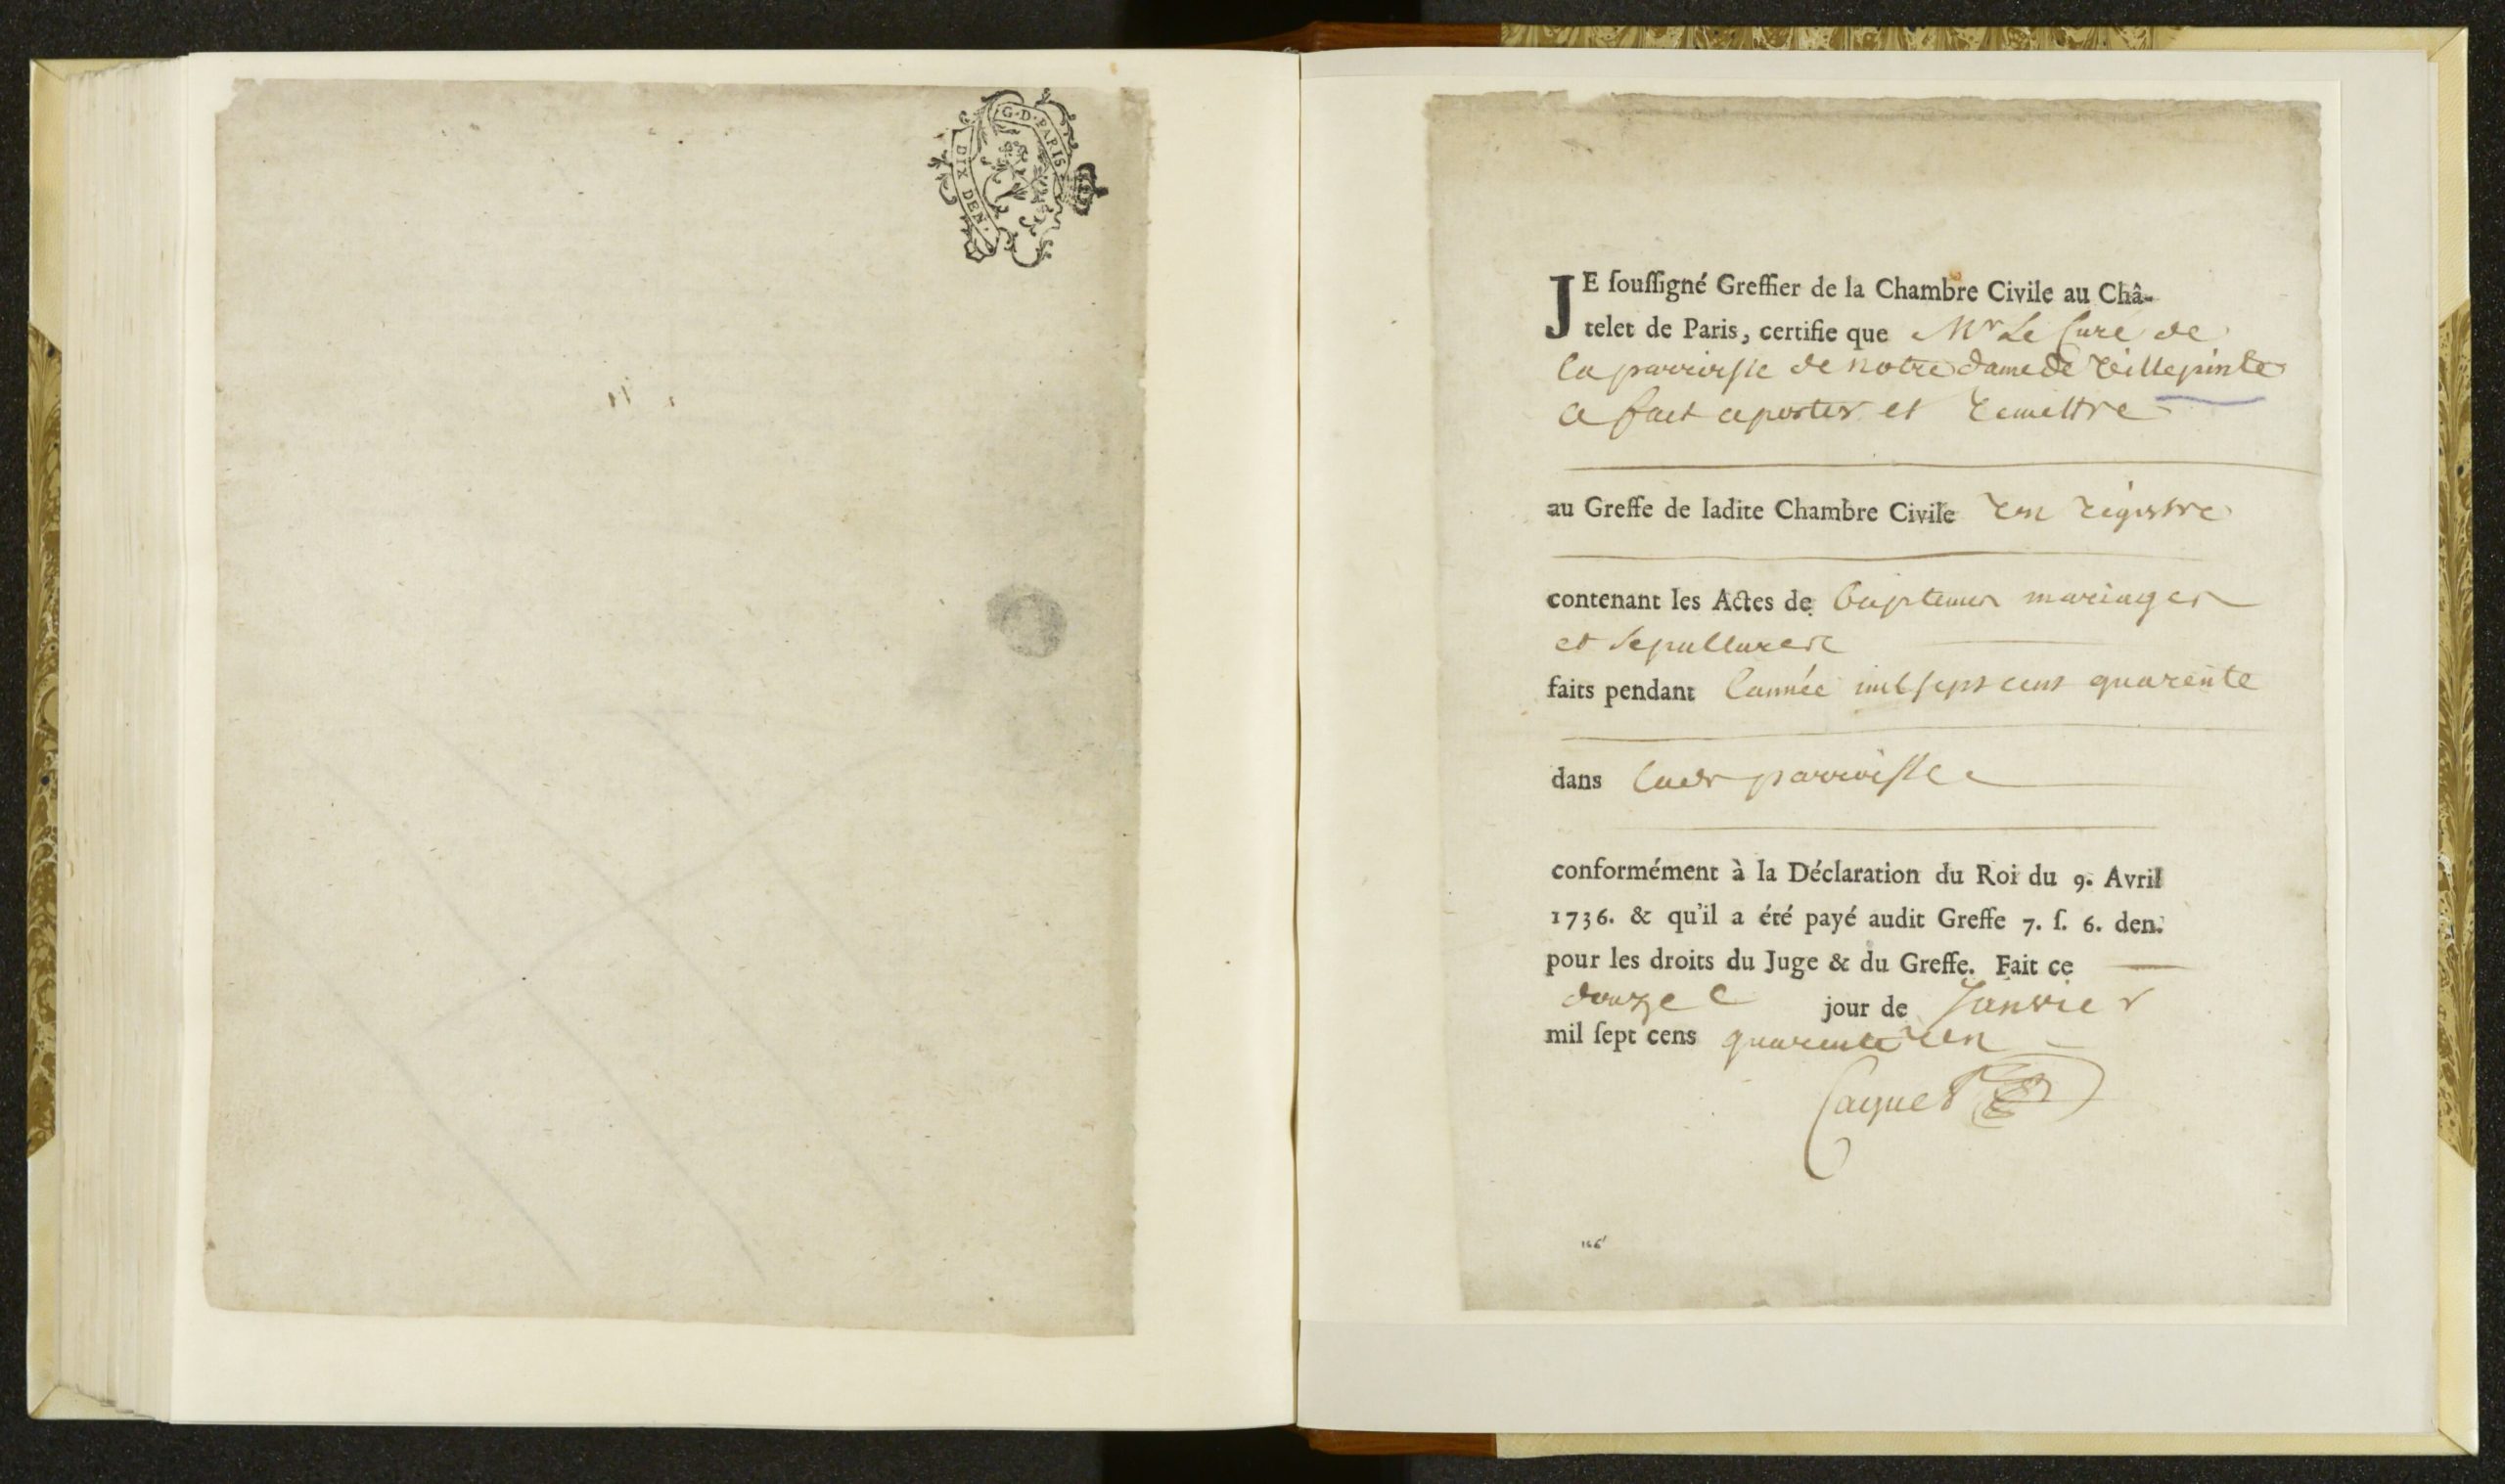 G·D·PARIS
DIX DEN.
JE ſouſſigné Greffier de la Chambre Civile au Châ-
telet de Paris, certifie que Mr Le Curé de
la parroisse de notre dame de Villepinte
a fait aporter et remettre
au Greffe de ladite Chambre Civile un registre
contenant les Actes de baptemes mariages
et sepultures
faits pendant l'année mil sept cent quarente
dans parroisse
conformément à la Déclaration du Roi du 9. Avril
1736. & qu'il a été payé audit Greffe 7. ſ. 6. den.
pour les droits du Juge & du Greffe. Fait ce
douze jour de Janvier
mil ſept cens quarente un
Caquet